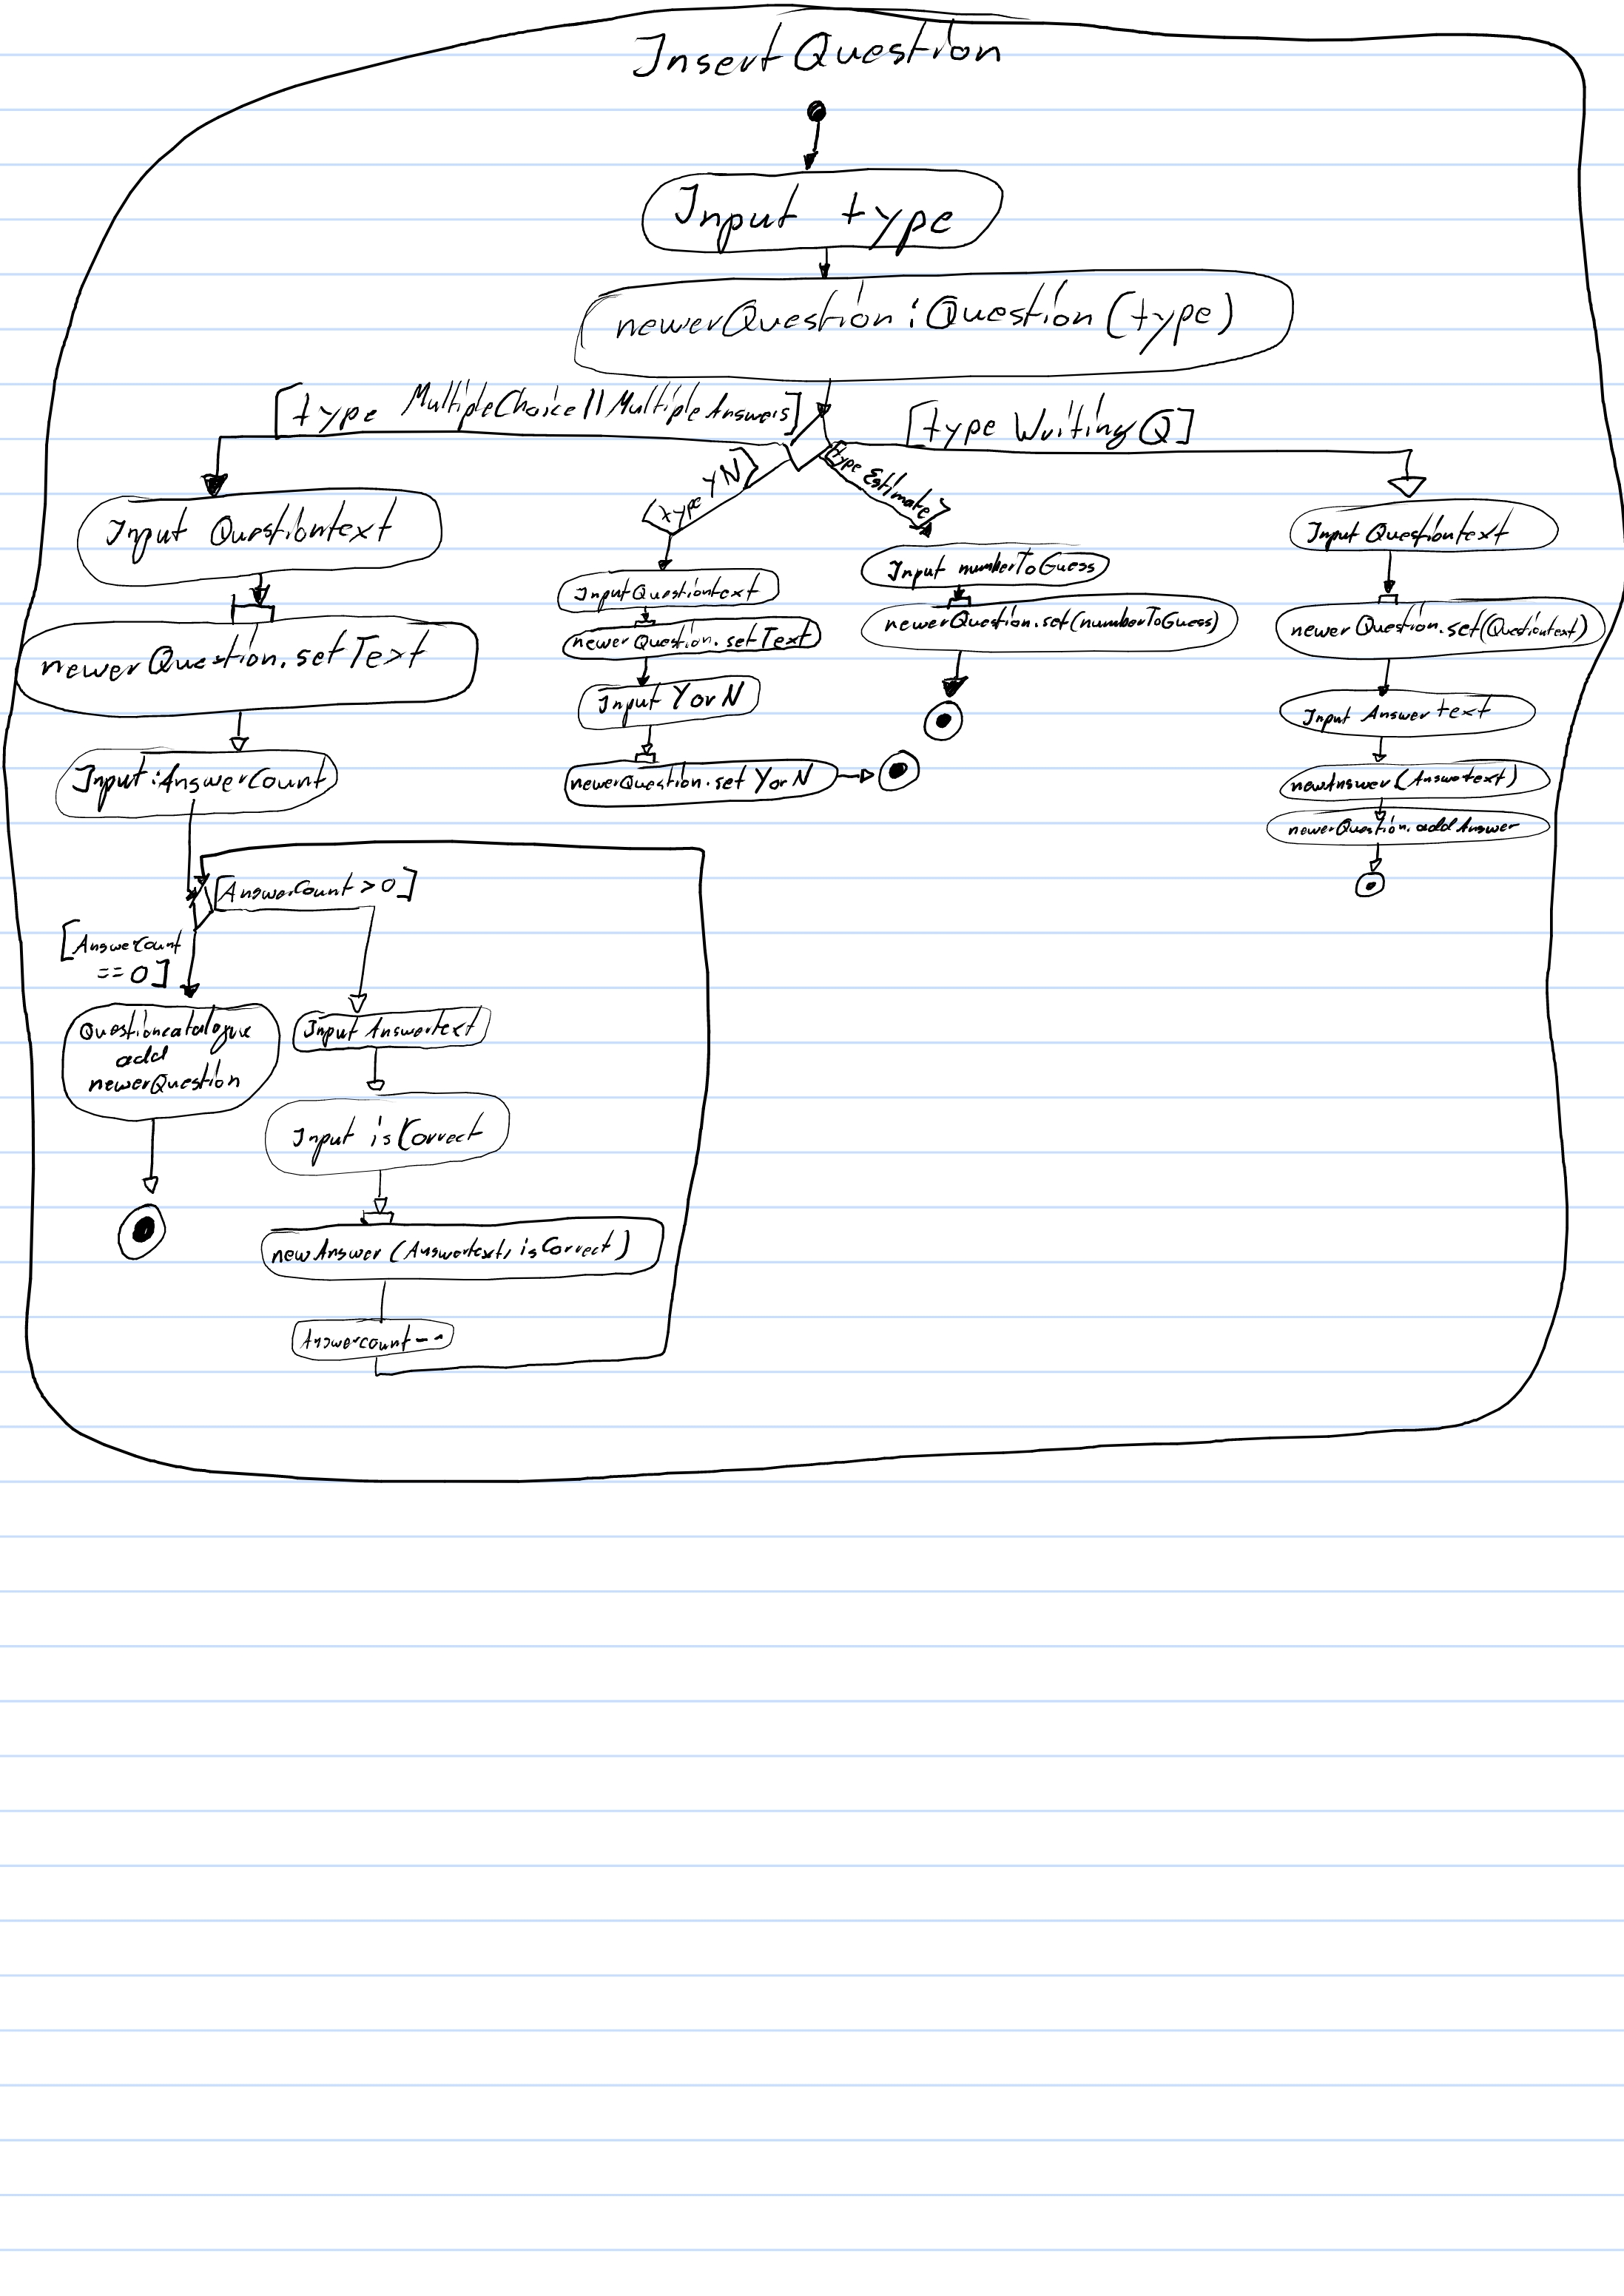 InsertQuestion
Input type
newerQuestion:Question(type)
[type MultipleChoice||MultipleAnswers]
[type WritingQ]
[type YN]
[type Estimate]
Input Questiontext
newerQuestion.setText
Input:AnswerCount
[AnswerCount>0]
[AnswerCount
==0]
Questioncatalogue
add
newerQuestion
Input Answertext
Input isCorrect
newAnswer(Answertext, isCorrect)
Answercount--
InputQuestiontext
newerQuestion.setText
Input YorN
newerQuestion.set YorN
Input numberToGuess
newerQuestion.set(numberToGuess)
Input Questiontext
newerQuestion.set(Questiontext)
Input Answertext
newAnswer(Answertext)
newerQuestion.addAnswer